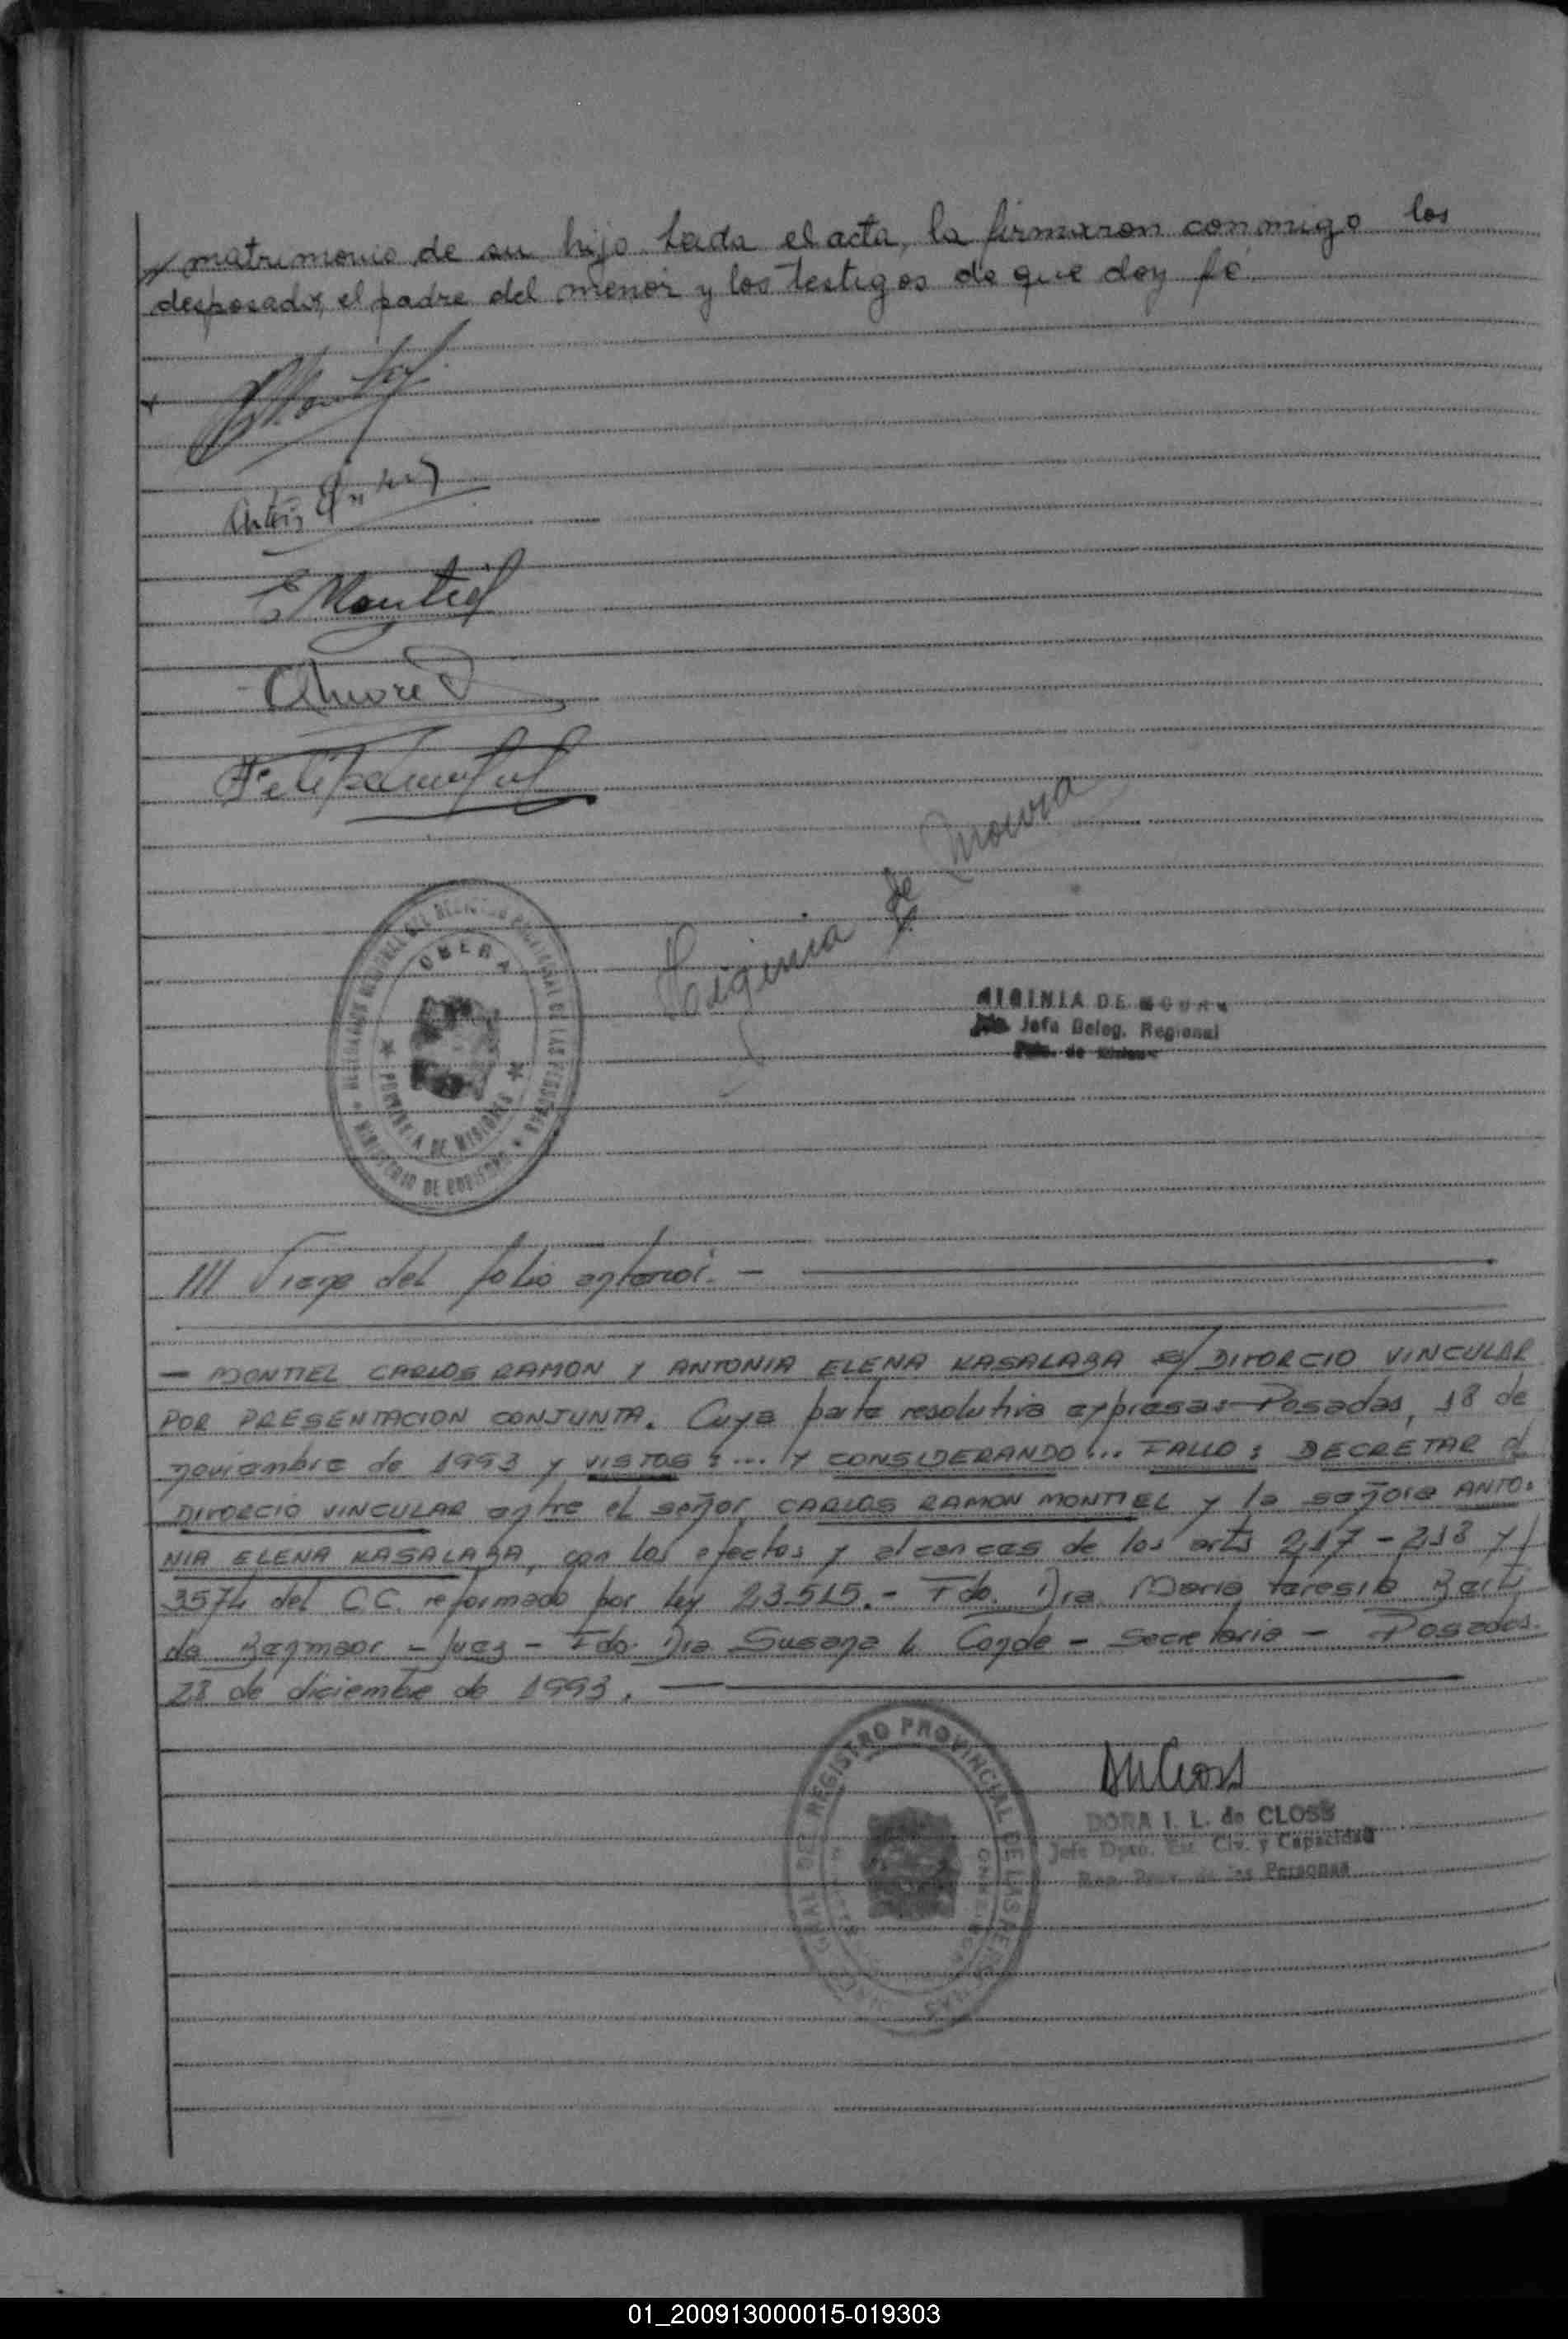 matrimonio de su hijo. Leida el acta, la firmaron conmigo los
desposados, el padre del menor y los testigos de que doy fé.
E Montiel
Alvarez
Higinia de Moura
OBERA
PROVINCIA DE MISIONES
MINISTERIO DE GOBIERNO
HIGINIA DE MOURA
Jefa Deleg. Regional
III Viene del folio anterior. —
— MONTIEL CARLOS RAMON Y ANTONIA ELENA KASALABA S/ DIVORCIO VINCULAR
POR PRESENTACION CONJUNTA. Cuya parte resolutiva expresa: Posadas, 18 de
noviembre de 1993 y VISTOS: ... Y CONSIDERANDO ... FALLO: DECRETAR el
DIVORCIO VINCULAR entre el señor CARLOS RAMON MONTIEL y la señora ANTO-
NIA ELENA KASALABA, con los efectos y alcances de los arts 217 - 218 y
3574 del C.C. reformado por ley 23.515.- Fdo. Dra Maria Teresita
de - Juez - Fdo. Dra Susana L. Conde - Secretaria - Posadas.
28 de diciembre de 1993. —
REGISTRO PROVINCIAL DE LAS PERSONAS
DORA I. L. de CLOSS
Jefe Dpto. Est. Civ. y Capacidad
Reg. Prov. de las Personas
01_200913000015-019303